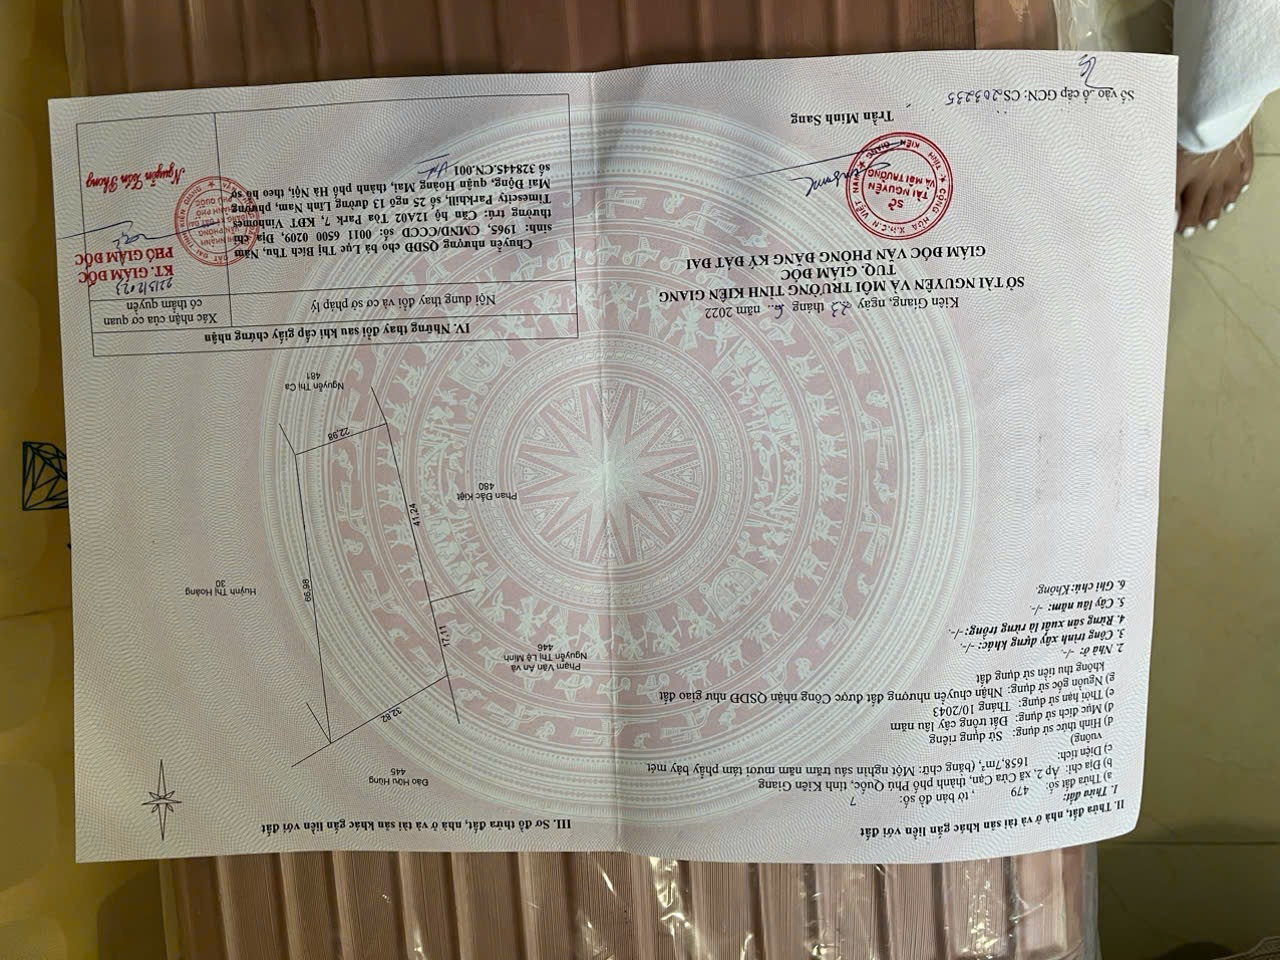 II. Thửa đất, nhà ở và tài sản khác gắn liền với đất
1. Thửa đất:
a) Thửa đất số: 479 , tờ bản đồ số: 7
b) Địa chỉ: Ấp 2, xã Cửa Cạn, thành phố Phú Quốc, tỉnh Kiên Giang
c) Diện tích: 1658,7m², (bằng chữ: Một nghìn sáu trăm năm mươi tám phẩy bảy mét
vuông)
d) Hình thức sử dụng: Sử dụng riêng
đ) Mục đích sử dụng: Đất trồng cây lâu năm
e) Thời hạn sử dụng: Tháng 10/2043
g) Nguồn gốc sử dụng: Nhận chuyển nhượng đất được Công nhận QSDĐ như giao đất
không thu tiền sử dụng đất
2. Nhà ở: -/-.
3. Công trình xây dựng khác: -/-.
4. Rừng sản xuất là rừng trồng: -/-.
5. Cây lâu năm: -/-.
6. Ghi chú: Không.
Kiên Giang, ngày 23 tháng 6 năm 2022
SỞ TÀI NGUYÊN VÀ MÔI TRƯỜNG TỈNH KIÊN GIANG
TUQ. GIÁM ĐỐC
GIÁM ĐỐC VĂN PHÒNG ĐĂNG KÝ ĐẤT ĐAI
SỞ
TÀI NGUYÊN
VÀ MÔI TRƯỜNG
Trần Minh Sang
Số vào sổ cấp GCN: CS 203235
III. Sơ đồ thửa đất, nhà ở và tài sản khác gắn liền với đất
Đào Hữu Hùng
445
32,82
Phạm Văn An và
Nguyễn Thị Lệ Minh
446
17,11
Huỳnh Thị Hoàng
30
66,98
41,24
Phan Đắc Kiệt
480
22,98
Nguyễn Thị Ca
481
IV. Những thay đổi sau khi cấp giấy chứng nhận
Nội dung thay đổi và cơ sở pháp lý
Xác nhận của cơ quan
có thẩm quyền
Chuyển nhượng QSDĐ cho bà Lục Thị Bích Thu, Năm
sinh: 1965, CMND/CCCD số: 0011 6500 0209, Địa chỉ
thường trú: Căn hộ 12A02 Tòa Park 7, KĐT Vinhomes
Timescity Parkhill, số 25 ngõ 13 đường Lĩnh Nam, phường
Mai Động, quận Hoàng Mai, thành phố Hà Nội, theo hồ sơ
số 328445.CN.001
KT. GIÁM ĐỐC
PHÓ GIÁM ĐỐC
Nguyễn Tấn Phong